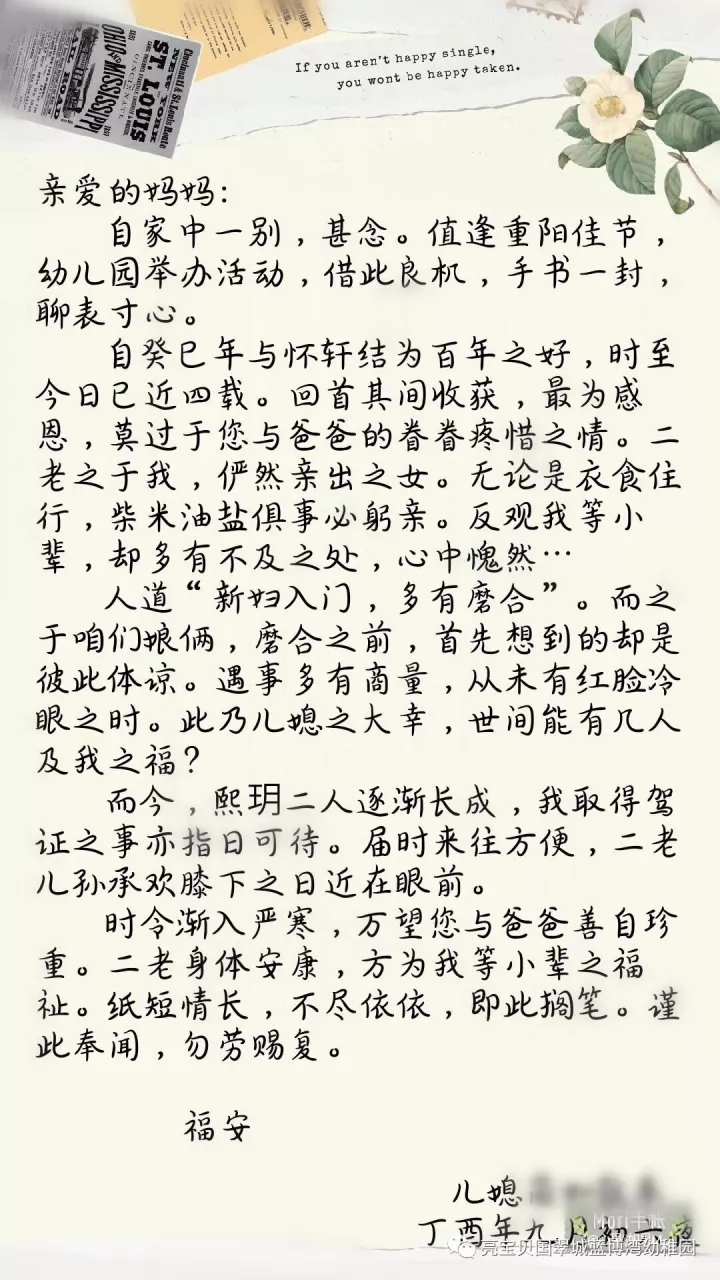 Cincinnati & St. Louis Route
NEW YORK
ST. LOUIS
OHIO & MISSISSIPPI
RAIL ROAD
If you aren't happy single,
you wont be happy taken.
亲爱的妈妈:
自家中一别，甚念。值逢重阳佳节，
幼儿园举办活动，借此良机，手书一封，
聊表寸心。
自癸巳年与怀轩结为百年之好，时至
今日已近四载。回首其间收获，最为感
恩，莫过于您与爸爸的眷眷疼惜之情。二
老之于我，俨然亲出之女。无论是衣食住
行，柴米油盐俱事必躬亲。反观我等小
辈，却多有不及之处，心中愧然…
人道“新妇入门，多有磨合”。而之
于咱们娘俩，磨合之前，首先想到的却是
彼此体谅。遇事多有商量，从未有红脸冷
眼之时。此乃儿媳之大幸，世间能有几人
及我之福？
而今，熙玥二人逐渐长成，我取得驾
证之事亦指日可待。届时来往方便，二老
儿孙承欢膝下之日近在眼前。
时令渐入严寒，万望您与爸爸善自珍
重。二老身体安康，方为我等小辈之福
祉。纸短情长，不尽依依，即此搁笔。谨
此奉闻，勿劳赐复。
福安
儿媳
丁酉年九月初六夜
Mori手帐
亮宝贝国翠城蓝博湾幼稚园